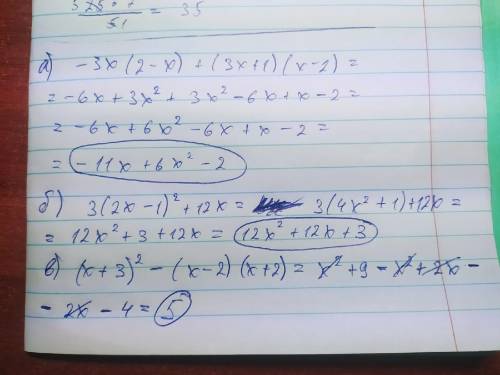 51 = 35
а) -3x(2-x) + (3x+1)(x-2) =
= -6x + 3x² + 3x² - 6x + x - 2 =
= -6x + 6x² - 6x + x - 2 =
= -11x + 6x² - 2
б) 3(2x-1)² + 12x = 3(4x² + 1) + 12x =
= 12x² + 3 + 12x = 12x² + 12x + 3
в) (x+3)² - (x-2)(x+2) = x² + 9 - x² + 2x -
- 2x - 4 = 5